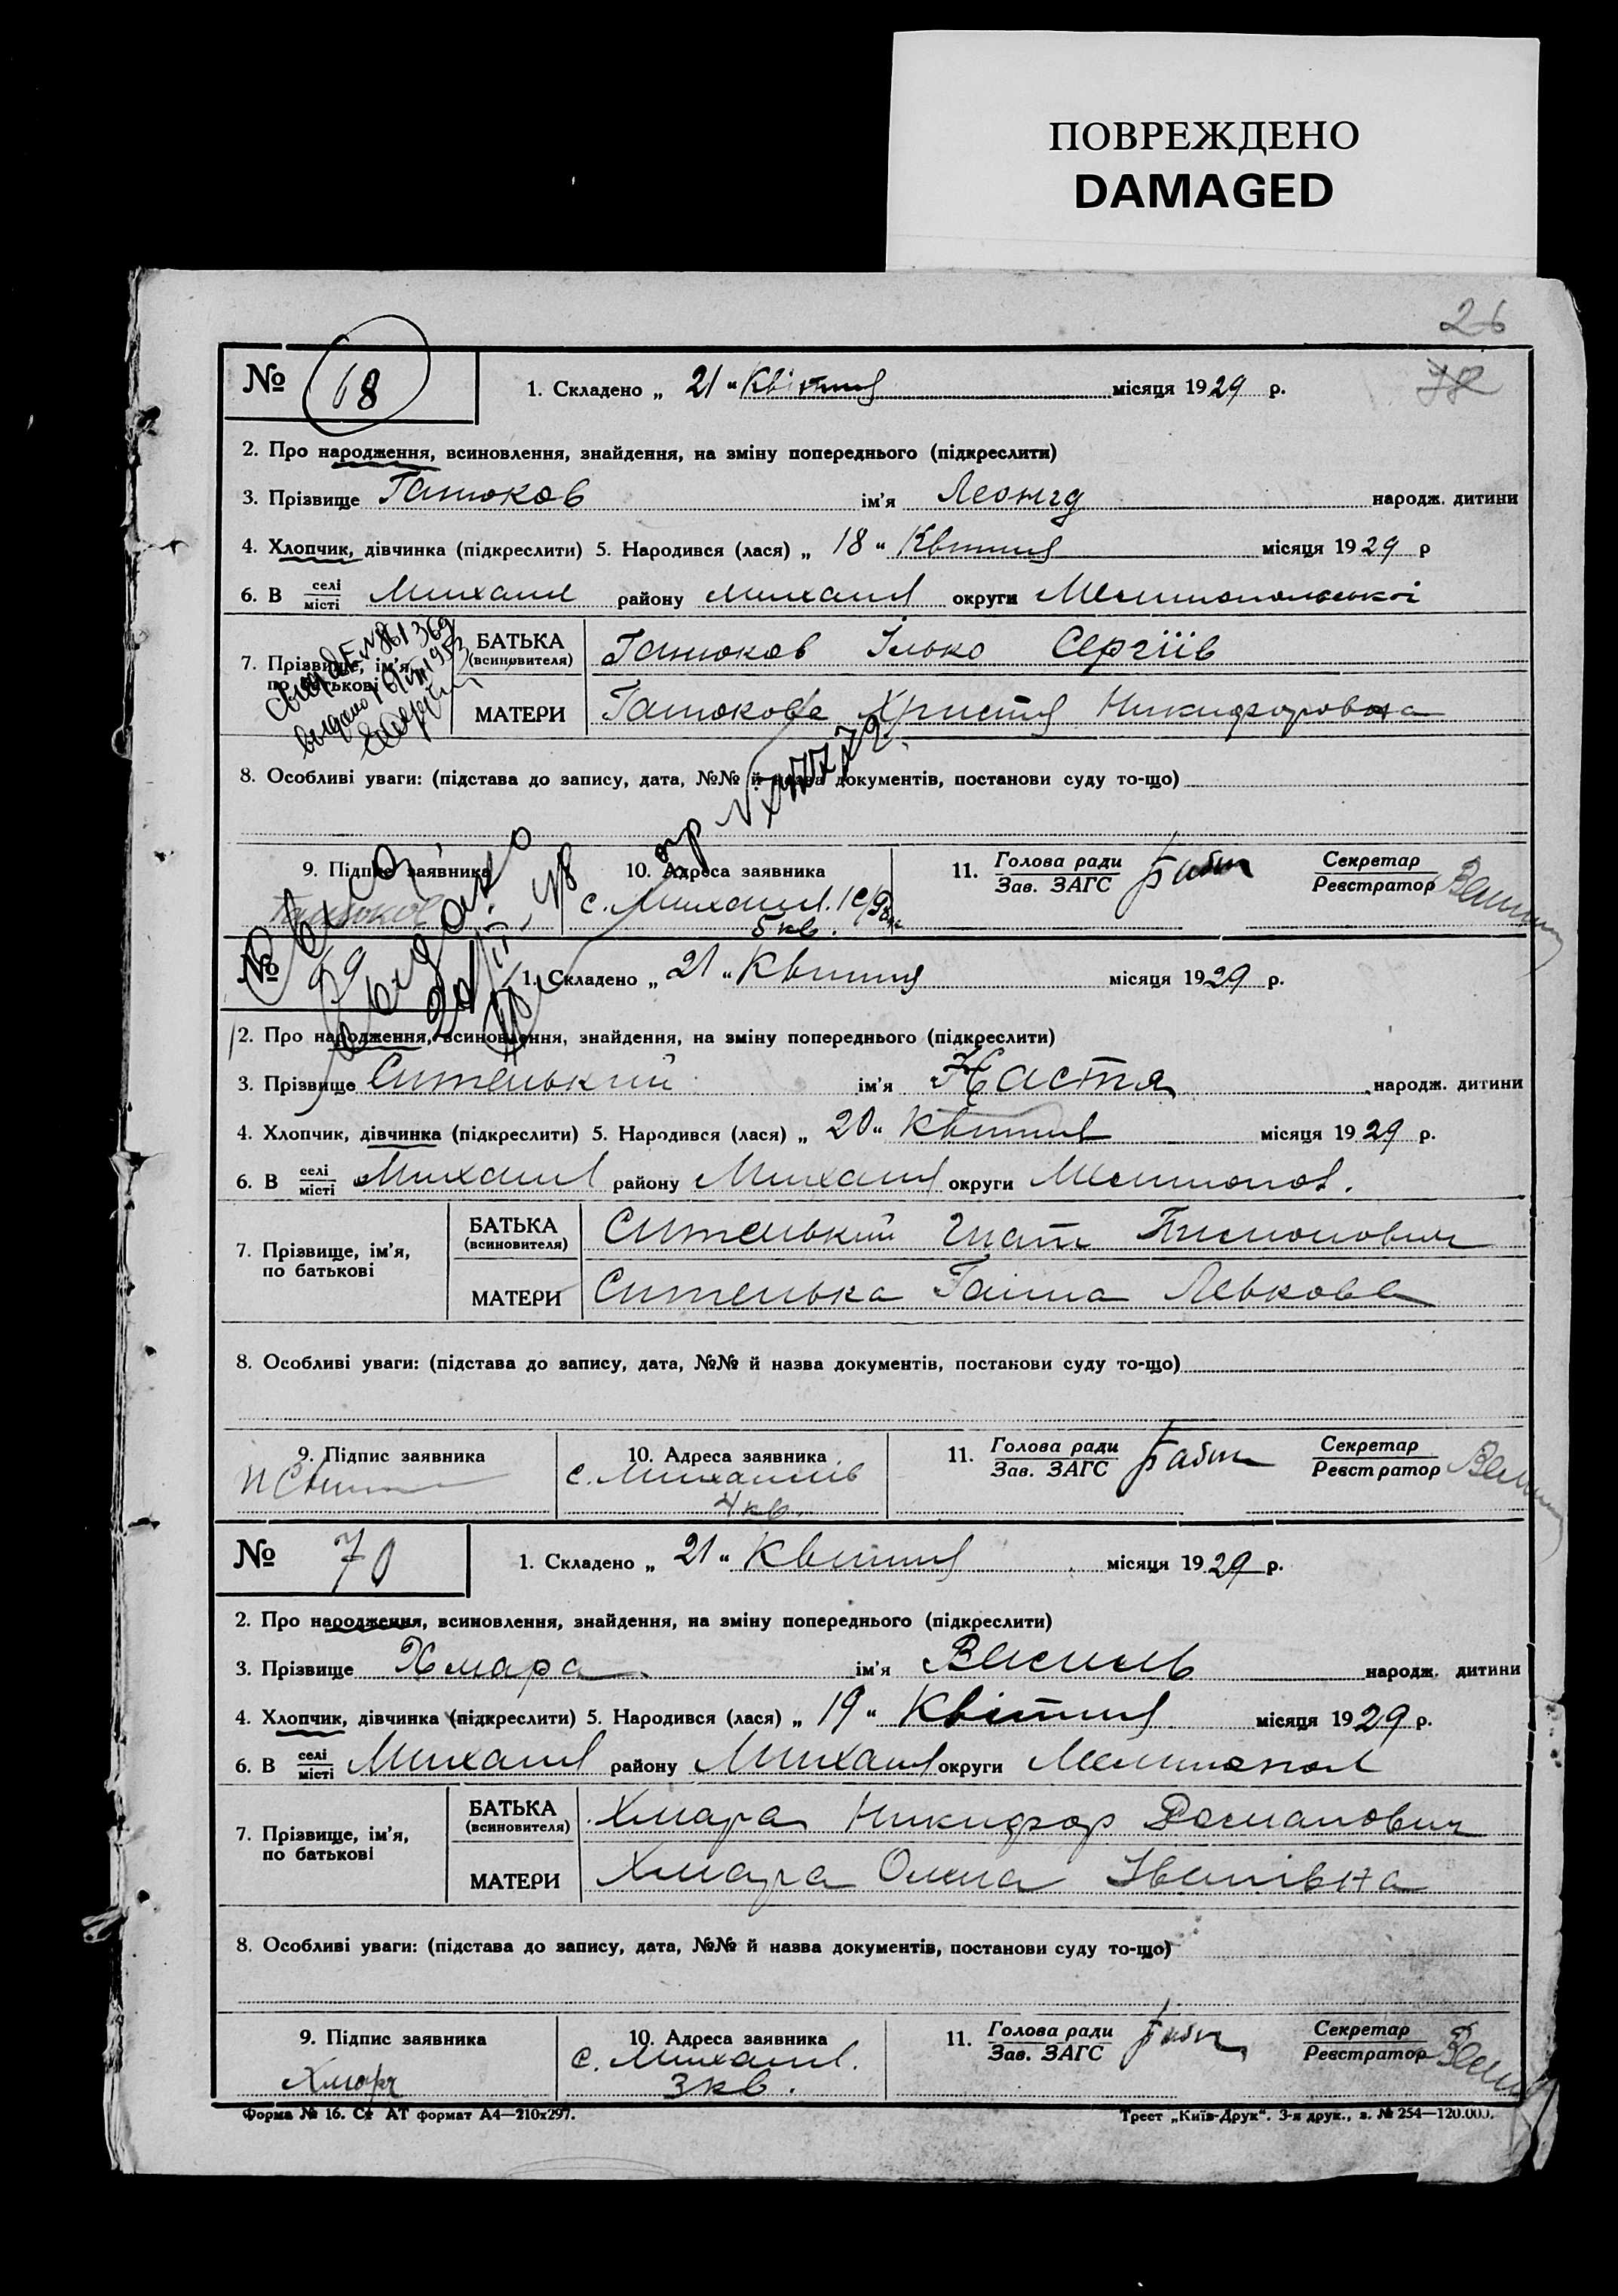 ПОВРЕЖДЕНО
DAMAGED
26
№ 68 1. Складено „ 21 “ Квітня місяця 1929 р.
2. Про народження, всиновлення, знайдення, на зміну попереднього (підкреслити)
3. Прізвище Ганюков ім'я Леонід народж. дитини
4. Хлопчик, дівчинка (підкреслити) 5. Народився (лася) „ 18 “ Квітня місяця 1929 р
6. В селі місті Михайл району Михайл округи Мелитопольської
7. Прізвище, ім'я, по батькові
БАТЬКА (всиновителя) Ганюков Ілько Сергіїв
МАТЕРИ Ганюкова Христя Никифоровна
8. Особливі уваги: (підстава до запису, дата, №№ й назва документів, постанови суду то-що)
9. Підпис заявника 10. Адреса заявника 11. Голова ради Зав. ЗАГС Секретар Реєстратор
с. Михайл.
5 кв.
№ 69 1. Складено „ 21 “ Квітня місяця 1929 р.
2. Про народження, всиновлення, знайдення, на зміну попереднього (підкреслити)
3. Прізвище Ситенький ім'я Настя народж. дитини
4. Хлопчик, дівчинка (підкреслити) 5. Народився (лася) „ 20 “ Квітня місяця 1929 р.
6. В селі місті Михайл району Михайл округи Мелитопол.
7. Прізвище, ім'я, по батькові
БАТЬКА (всиновителя) Ситенький Гнат
МАТЕРИ Ситенька Ганна Левкова
8. Особливі уваги: (підстава до запису, дата, №№ й назва документів, постанови суду то-що)
9. Підпис заявника 10. Адреса заявника 11. Голова ради Зав. ЗАГС Секретар Реєстратор
с. Михайлів
4 кв.
№ 70 1. Складено „ 21 “ Квітня місяця 1929 р.
2. Про народження, всиновлення, знайдення, на зміну попереднього (підкреслити)
3. Прізвище Хмара ім'я Василь народж. дитини
4. Хлопчик, дівчинка (підкреслити) 5. Народився (лася) „ 19 “ Квітня місяця 1929 р.
6. В селі місті Михайл району Михайл округи Мелитопол
7. Прізвище, ім'я, по батькові
БАТЬКА (всиновителя) Хмара Никифор
МАТЕРИ Хмара Олена Іванівна
8. Особливі уваги: (підстава до запису, дата, №№ й назва документів, постанови суду то-що)
9. Підпис заявника 10. Адреса заявника 11. Голова ради Зав. ЗАГС Секретар Реєстратор
Хмара с. Михайл.
3 кв.
Форма № 16. Ст АТ формат А4—210х297. Трест „Київ-Друк“. 3-я друк., з. № 254—120.000.